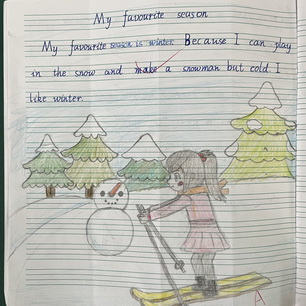 My favourite season
My favourite season is winter. Because I can play
in the snow and make a snowman but cold. I
like winter.
A